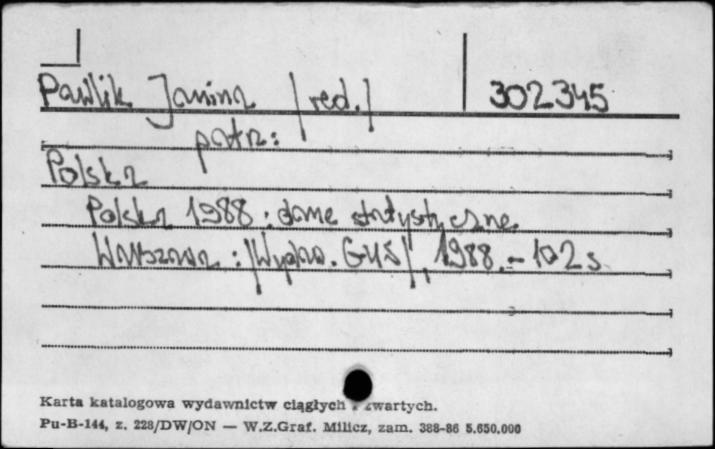 Pawlik Janina /red./ 302345
patrz:
Polska
Polska 1988 : dane statystyczne.
Warszawa : /Wydaw. GUS/, 1988. - 102 s.
Karta katalogowa wydawnictw ciągłych zwartych.
Pu-B-144, z. 228/DW/ON — W.Z.Graf. Milicz, zam. 388-86 5.650.000